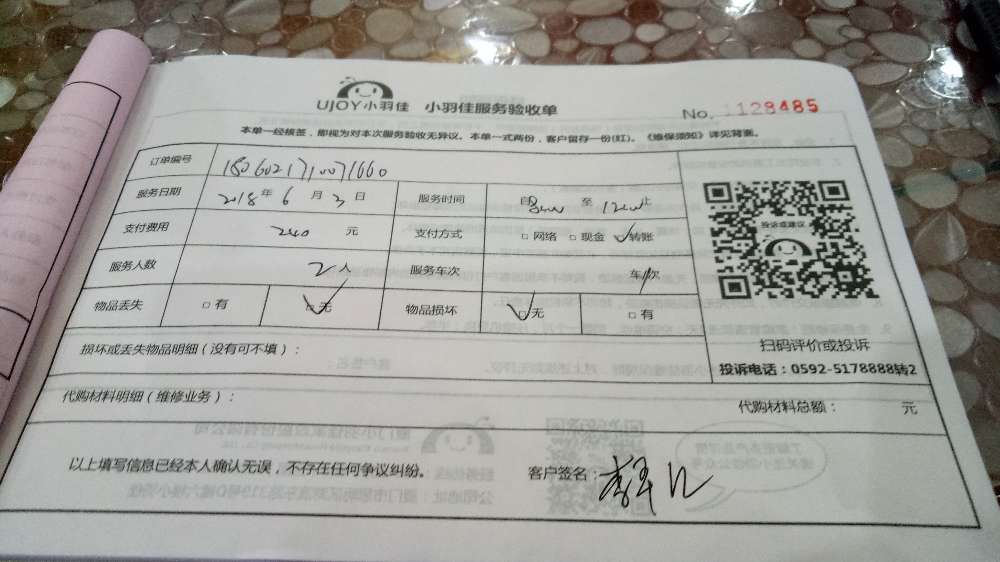 UJOY小羽佳 小羽佳服务验收单 No. 1128485
本单一经核签，即视为对本次服务验收无异议。本单一式两份，客户留存一份(红)。《维保须知》详见背面。
订单编号
服务日期 2018年6月3日 服务时间 自 至 止
支付费用 240 元 支付方式 □网络 □现金 □转账
服务人数 2人 服务车次 车/次
物品丢失 □有 □无 物品损坏 □无 □有
投诉或建议
扫码评价或投诉
投诉电话：0592-5178888转2
损坏或丢失物品明细（没有可不填）：
代购材料明细（维修业务）： 代购材料总额： 元
以上填写信息已经本人确认无误，不存在任何争议纠纷。 客户签名：